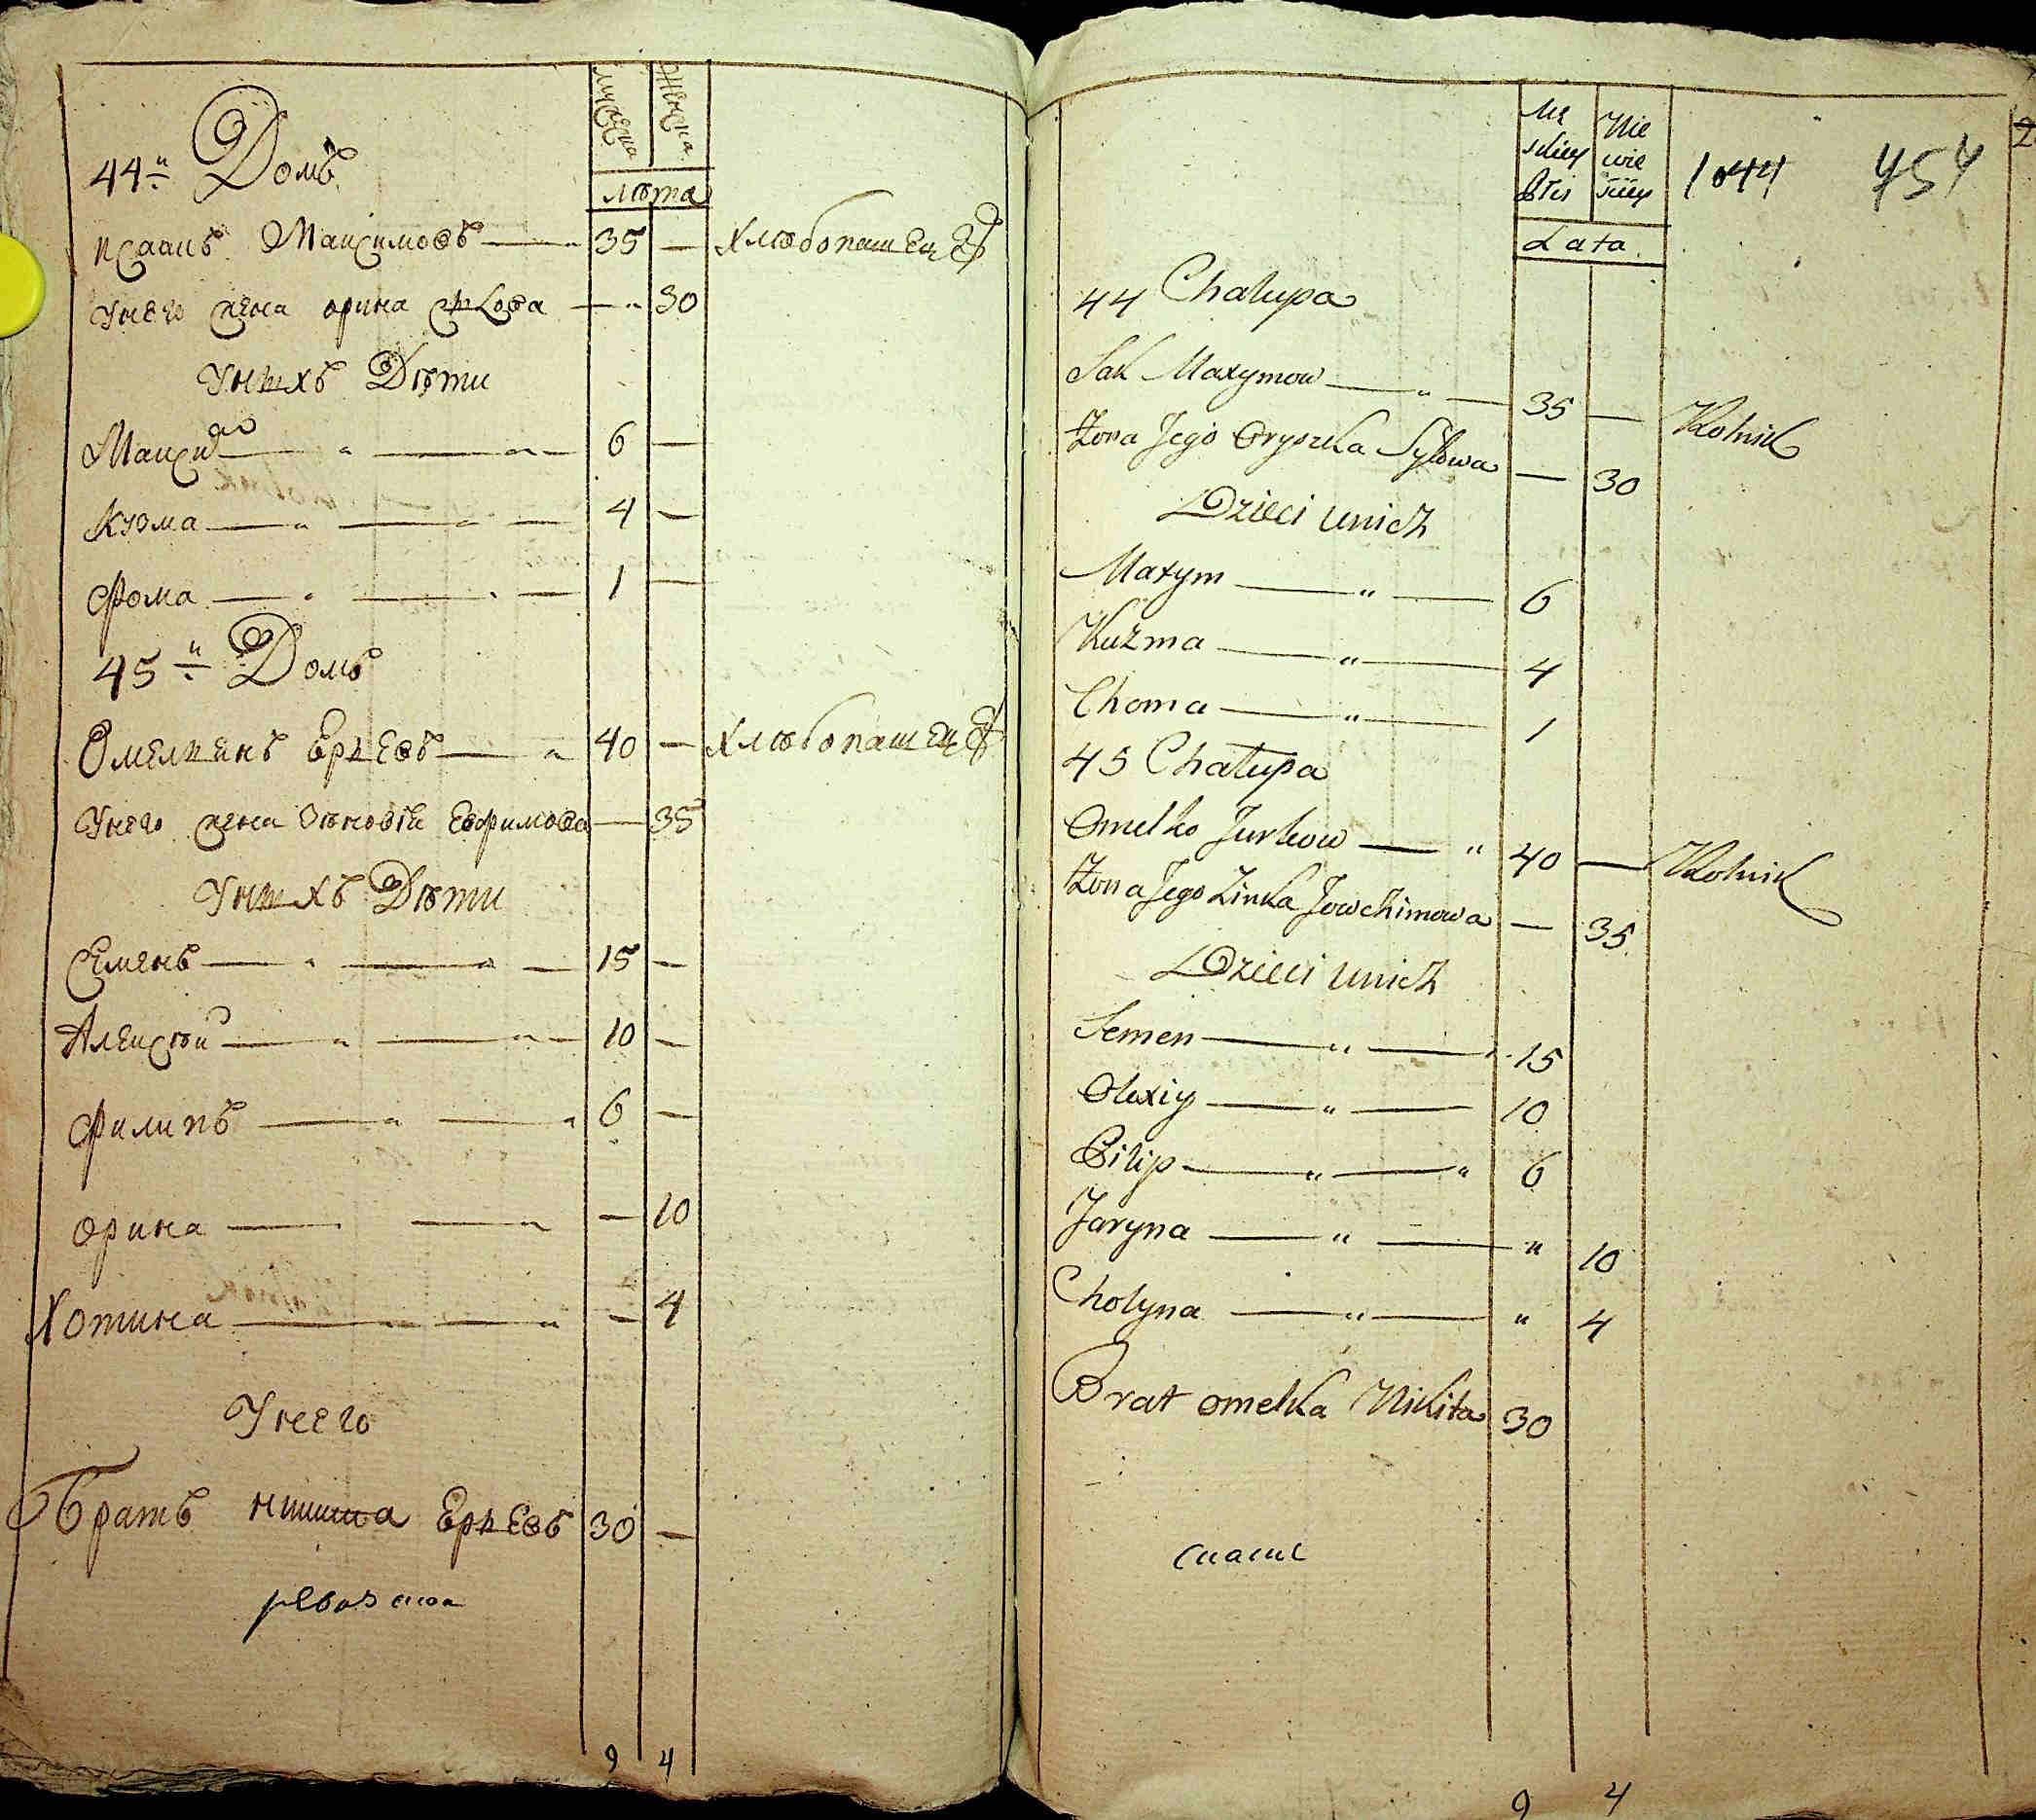 Мужеска Женска
лѣта
44й Домъ
Исаакъ Максимовъ 35 — хлѣбопашецъ
У него жена орина — 30
У нихъ Дѣти
Максимъ 6 —
Кузма 4 —
Фома 1 —
45й Домъ
Омелянъ Еркевъ 40 — хлѣбопашецъ
У него жена Зѣновія Евфимова — 35
У нихъ Дѣти
Семенъ 15 —
Алексѣй 10 —
Филипъ 6 —
орина — 10
Хотина — 4
У него
Братъ никита Еркевъ 30 —
9 4
Lata
1044 454
44 Chalupa
Sak Maxymow 35 — Rolnik
Żona Jego Oryszka Syłowa — 30
Dzieci unich
Maxym 6
Kuźma 4
Choma 1
45 Chalupa
Omelko Jurkow 40 — Rolnik
Żona Jego Zinka Jowchimowa — 35
Dzieci unich
Semen 15
Olexiy 10
Pilip 6
Jaryna " 10
Chotyna " 4
Brat omelka Nikita 30
9 4